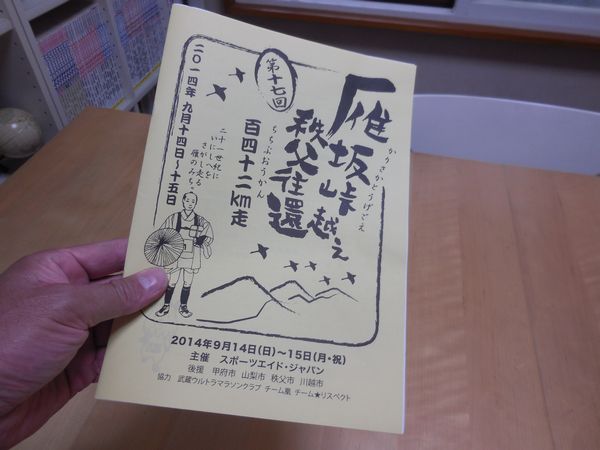 第十七回
かりさかとうげごえ
雁坂峠越え
秩父往還
ちちぶおうかん
百四十二km走
二十一世紀に
いにしへを
さがし走る
雁のみち。
二〇一四年 九月十四日〜十五日
2014年9月14日(日)〜15日(月・祝)
主催 スポーツエイド・ジャパン
後援 甲府市 山梨市 秩父市 川越市
協力 武蔵ウルトラマラソンクラブ チーム凰 チーム★リスペクト